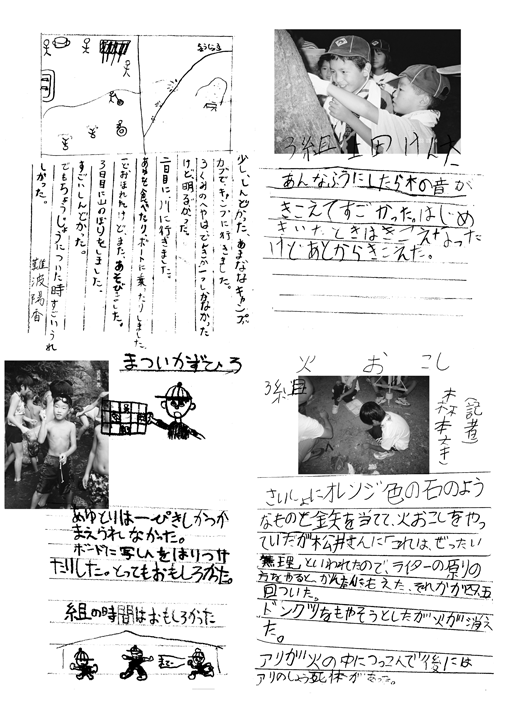 少し、しんどかった、あまななキャンプ
カブで、キャンプに行きました。
けど明るかった。
二日目に川に行きました。
あゆを食べたり、ボートに乗ったりしました。
おぼれたけど、また、あそびました。
3日目に山のぼりをしました。
すごいしんどかった。
でもちょうじょうについた時すごいうれ
しかった。
難波陽香
3組 けんた
あんなふうにしたら木の音が
きこえてすごかった。はじめ
きいたときはきこえなかった
けどあとからきこえた。
まついかずひろ
あゆとりは一ぴきしかつか
まえられなかった。
ボードに写しんをはりつけ
たりした。とってもおもしろかた。
組の時間はおもしろかった
火おこし
3組
(記者)
森本大き
さいしょにオレンジ色の石のよう
なものと金矢を当てて、火おこしをやっ
ていたが松井さんに「これは、ぜったい
無理」といわれたので、ライターの
回ついた。
ドングリをもやそうとしたが火が消え
た。
アリが火の中につっこんで後には
アリのしょう死体があった。